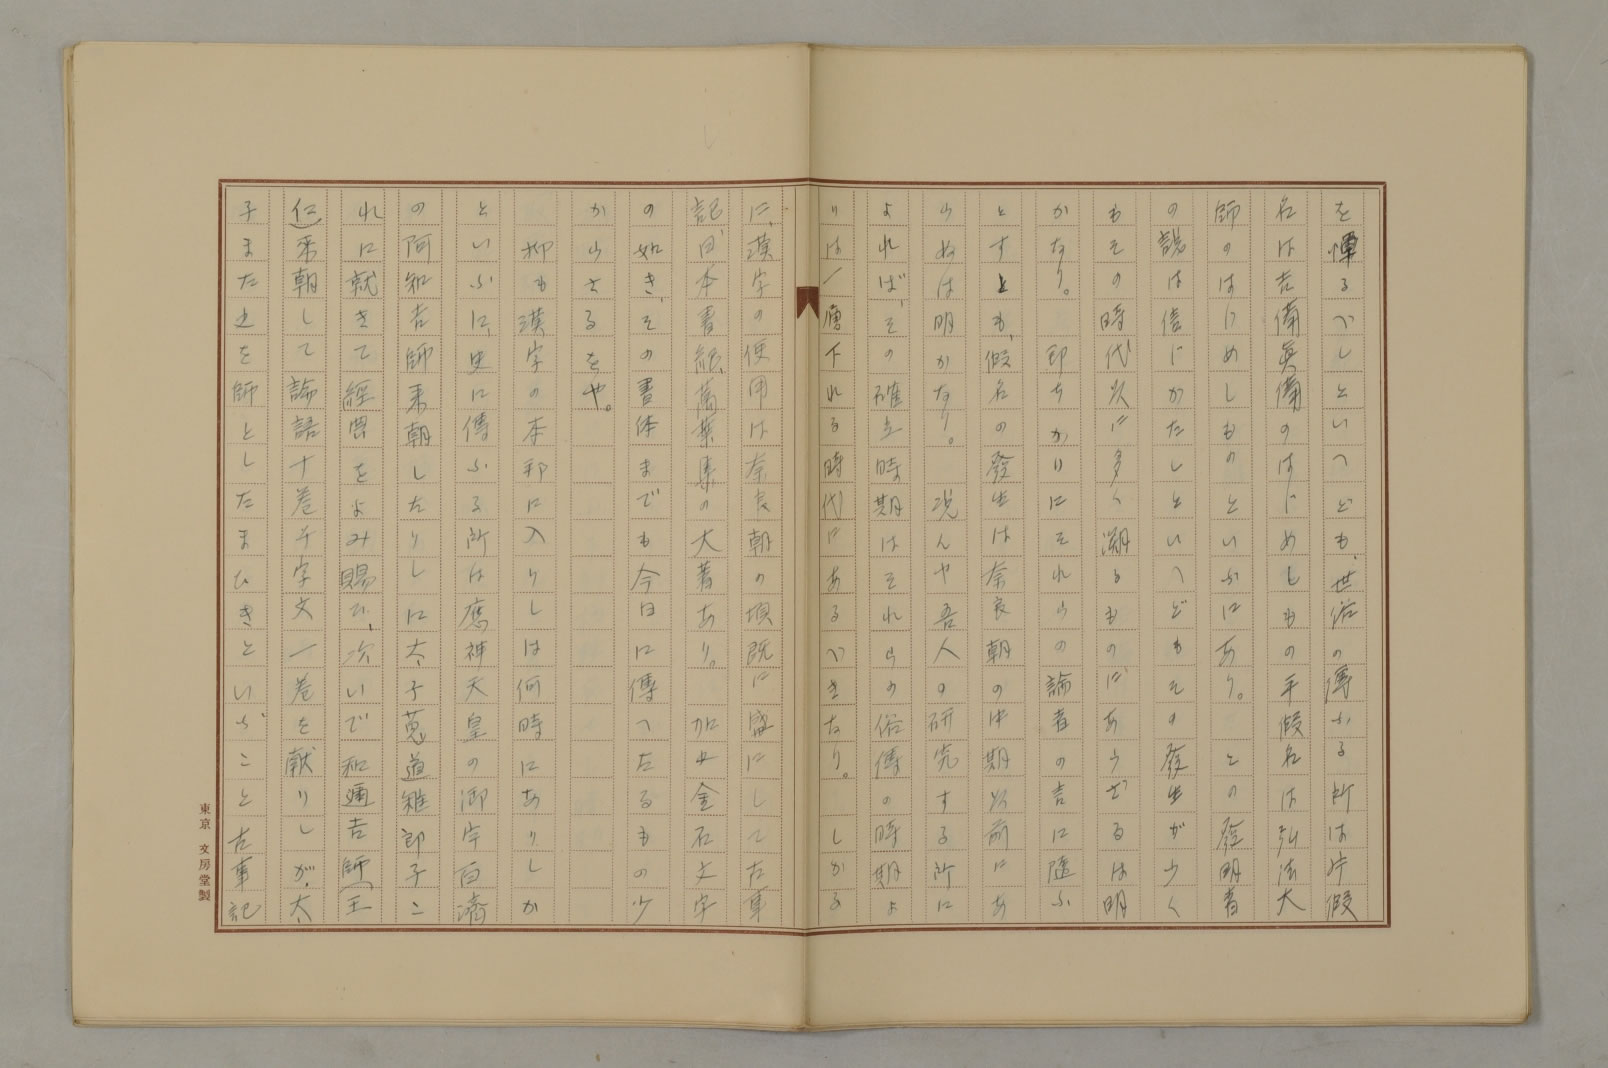 を憚るべしといへども、世俗の傳ふる所は片假
名は吉備眞備のはじめしもの平假名は弘法大
師のはじめしものといふにあり。 この發明者
の説は信じかたしといへどもその發生が少く
もその時代以に多く溯るものにあらざるは明
かなり。 即ちかりにそれらの論者の言に隨ふ
とすとも、假名の發生は奈良朝の中期以前にあ
らぬは明かなり。 况んや吾人の研究する所に
よれば、その確立時期はそれらの俗傳の時期よ
りは一層下れる時代にあるべきなり。 しかる
に、漢字の使用は奈良朝の頃既に盛にして古事
記、日本書紀、萬葉集の大著あり。 加之金石文字
の如き、その書体までも今日に傳へたるもの少
からさるをや。
抑も漢字の本邦に入りしは何時にありしか
といふに、史に傳ふる所は應神天皇の御宇百濟
の阿知吉師来朝したりしに太子菟道稚郎子こ
れに就きて經典をよみ賜ひ、次いで和邇吉師(王
仁)来朝して論語十巻千字文一巻を獻りしが、太
子また之を師としたまひきといふこと古事記
東京 文房堂製